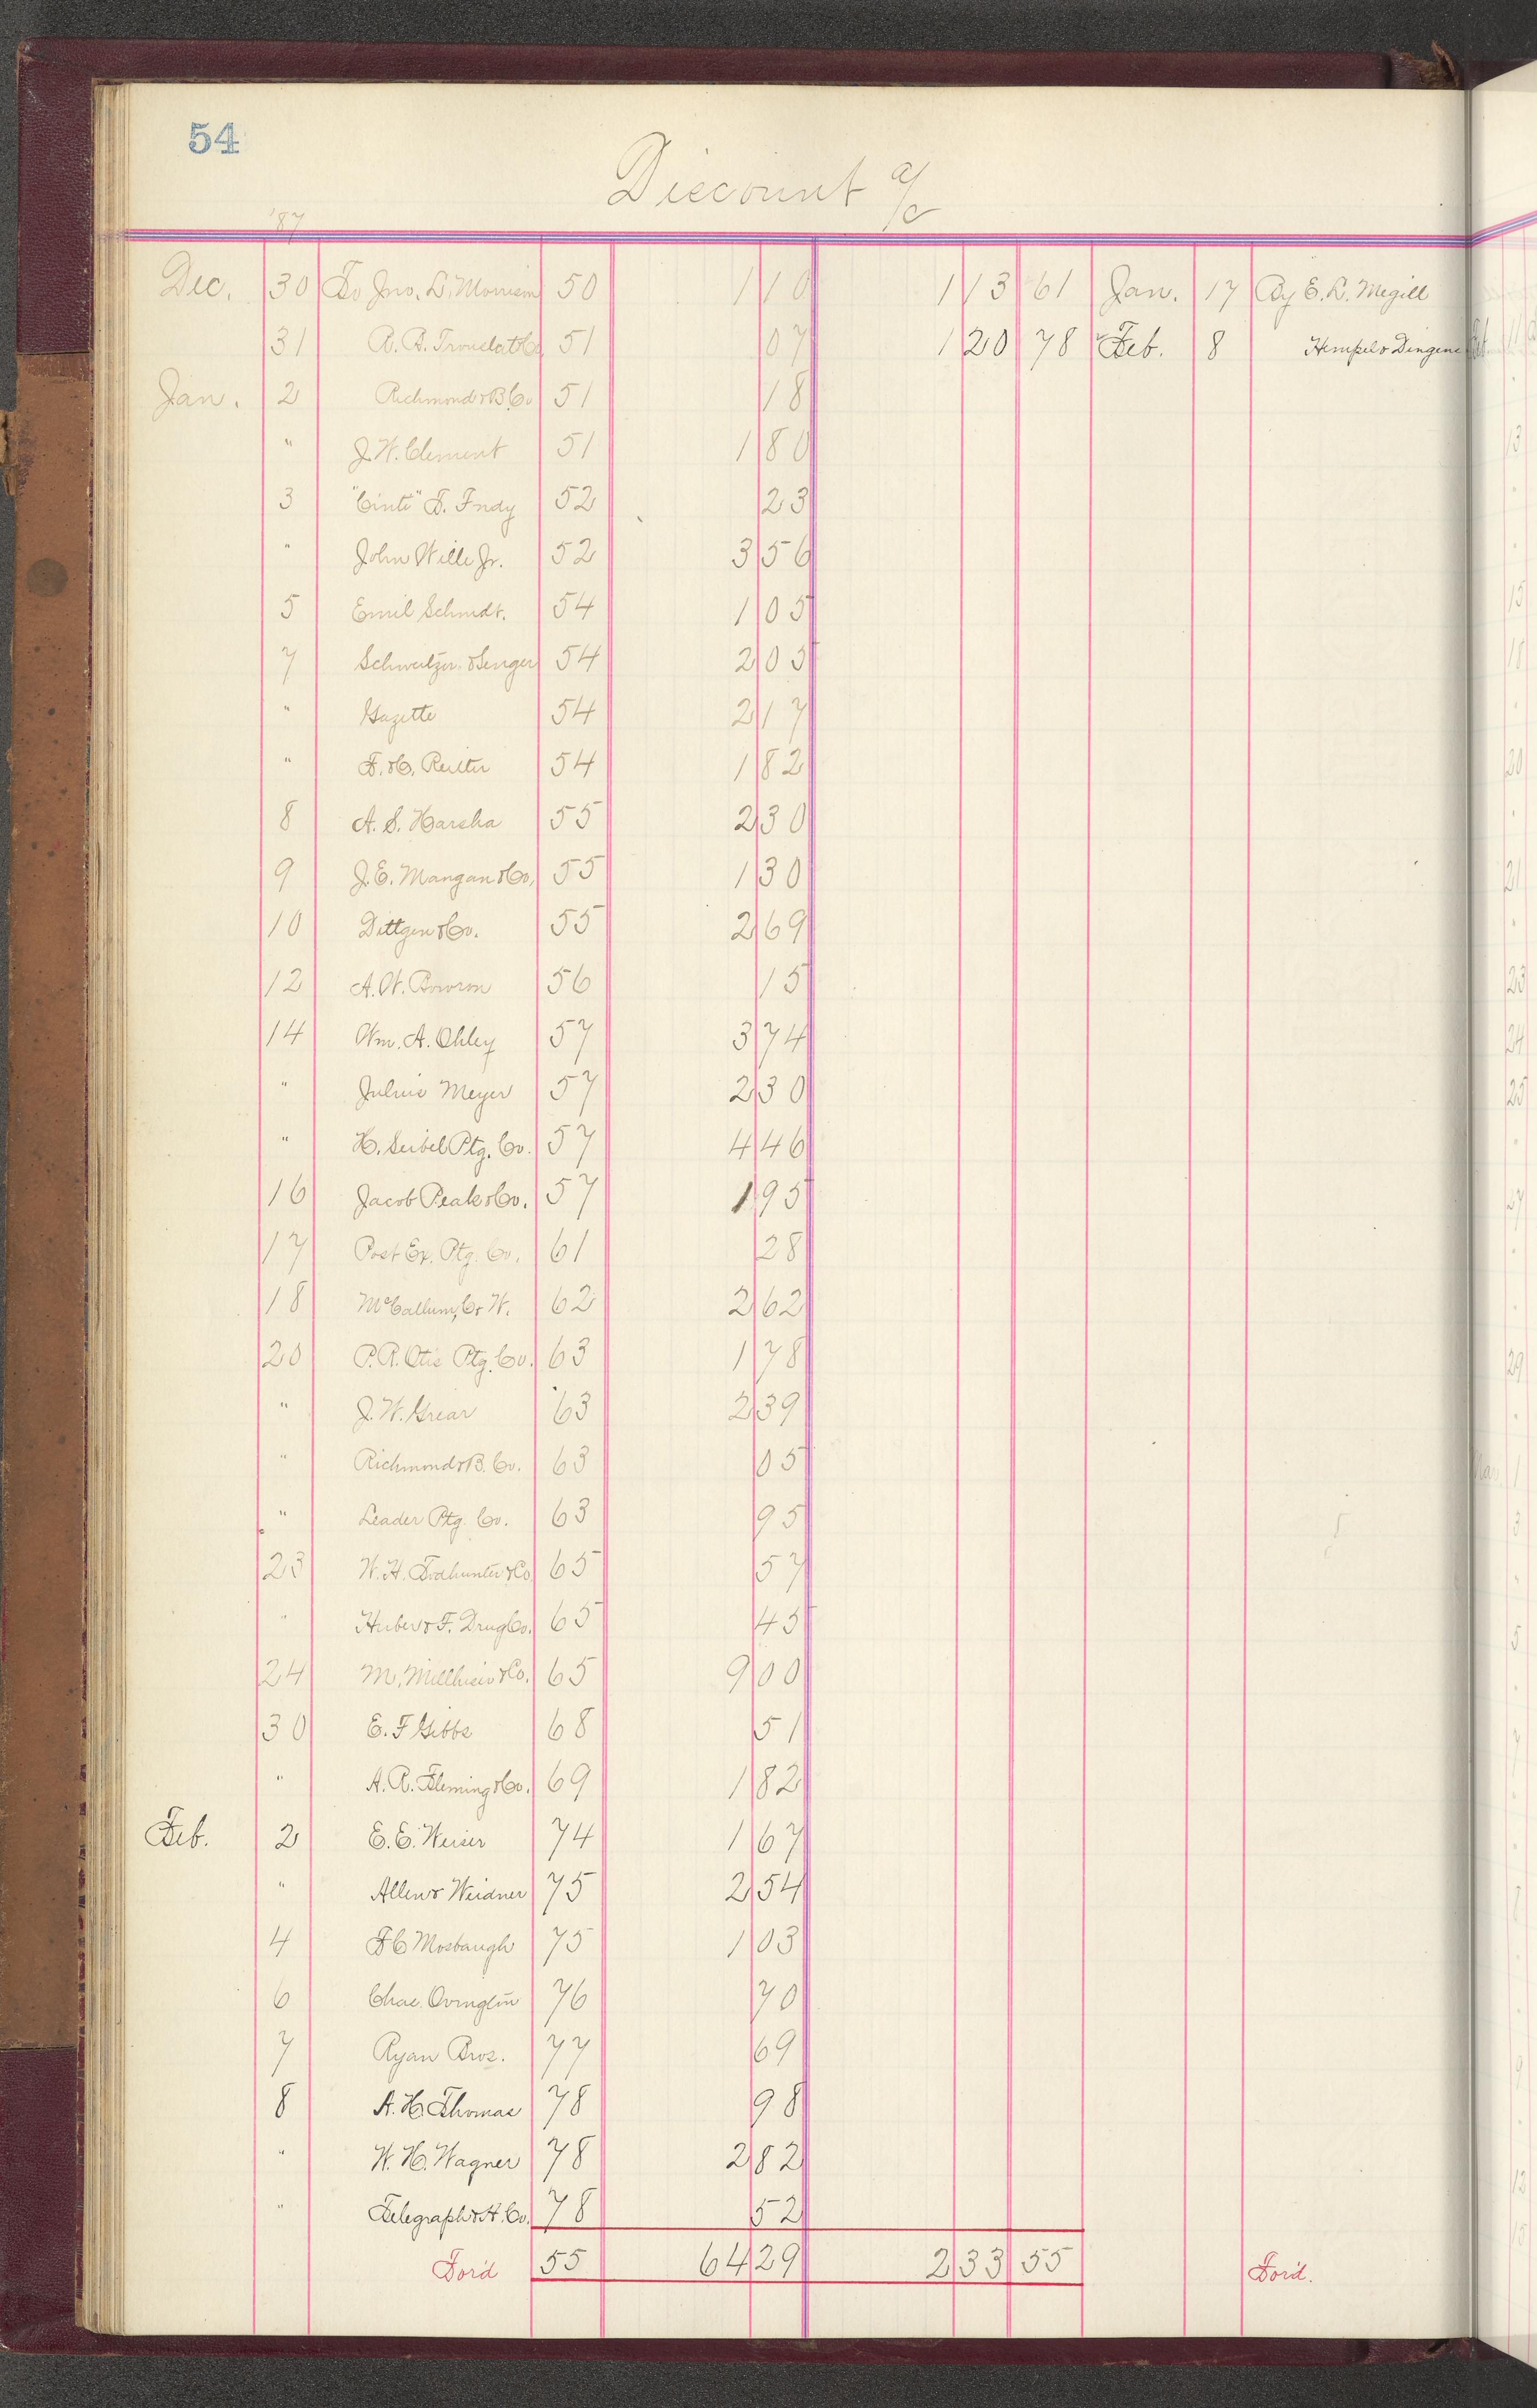 54
Discount a/c
'87
Dec. 30 To Jno. D. Morrison 50 1 10 1 13 61 Jan. 17 By E. L. Megill
31 51 07 1 20 78 Feb. 8 Hempel & Dingens
Jan. 2 Richmond & B. Co. 51 18
" J. W. Clement 51 1 80
3 "Cinti" T. Fndy 52 23
" John Wille Jr. 52 3 56
5 Emil Schmdt. 54 1 05
7 Schweitzer & Senger 54 2 05
" Gazette 54 2 17
" F. H. Reiter 54 1 82
8 A. S. Harsha 55 2 30
9 J. E. Mangan & Co. 55 1 30
10 Dittgen & Co. 55 2 69
12 A. W. Bowron 56 15
14 Wm. A. Ohley 57 3 74
" Julius Meyer 57 2 30
" H. Seibel Ptg. Co. 57 4 46
16 Jacob Peak & Co. 57 1 95
17 Post Ex. Ptg. Co. 61 28
18 McCallum, C. W. 62 2 62
20 P. R. Otis Ptg. Co. 63 1 78
" J. W. Grear 63 2 39
" Richmond & B. Co. 63 05
" Leader Ptg. Co. 63 95
23 W. H. Trahunter & Co. 65 57
" Huber & F. Drug Co. 65 45
24 M. Millhiser & Co. 65 9 00
30 E. F Gibbs 68 51
" A. R. Fleming & Co. 69 1 82
Feb. 2 E. E. Weiser 74 1 67
" Allen & Weidner 75 2 54
4 F C Mosbaugh 75 1 03
6 Chas. Ovington 76 70
7 Ryan Bros. 77 69
8 A. H. Thomas 78 98
" W. H. Wagner 78 2 82
" Telegraph & A. Co. 78 52
For'd 55 64 29 2 33 55 For'd.